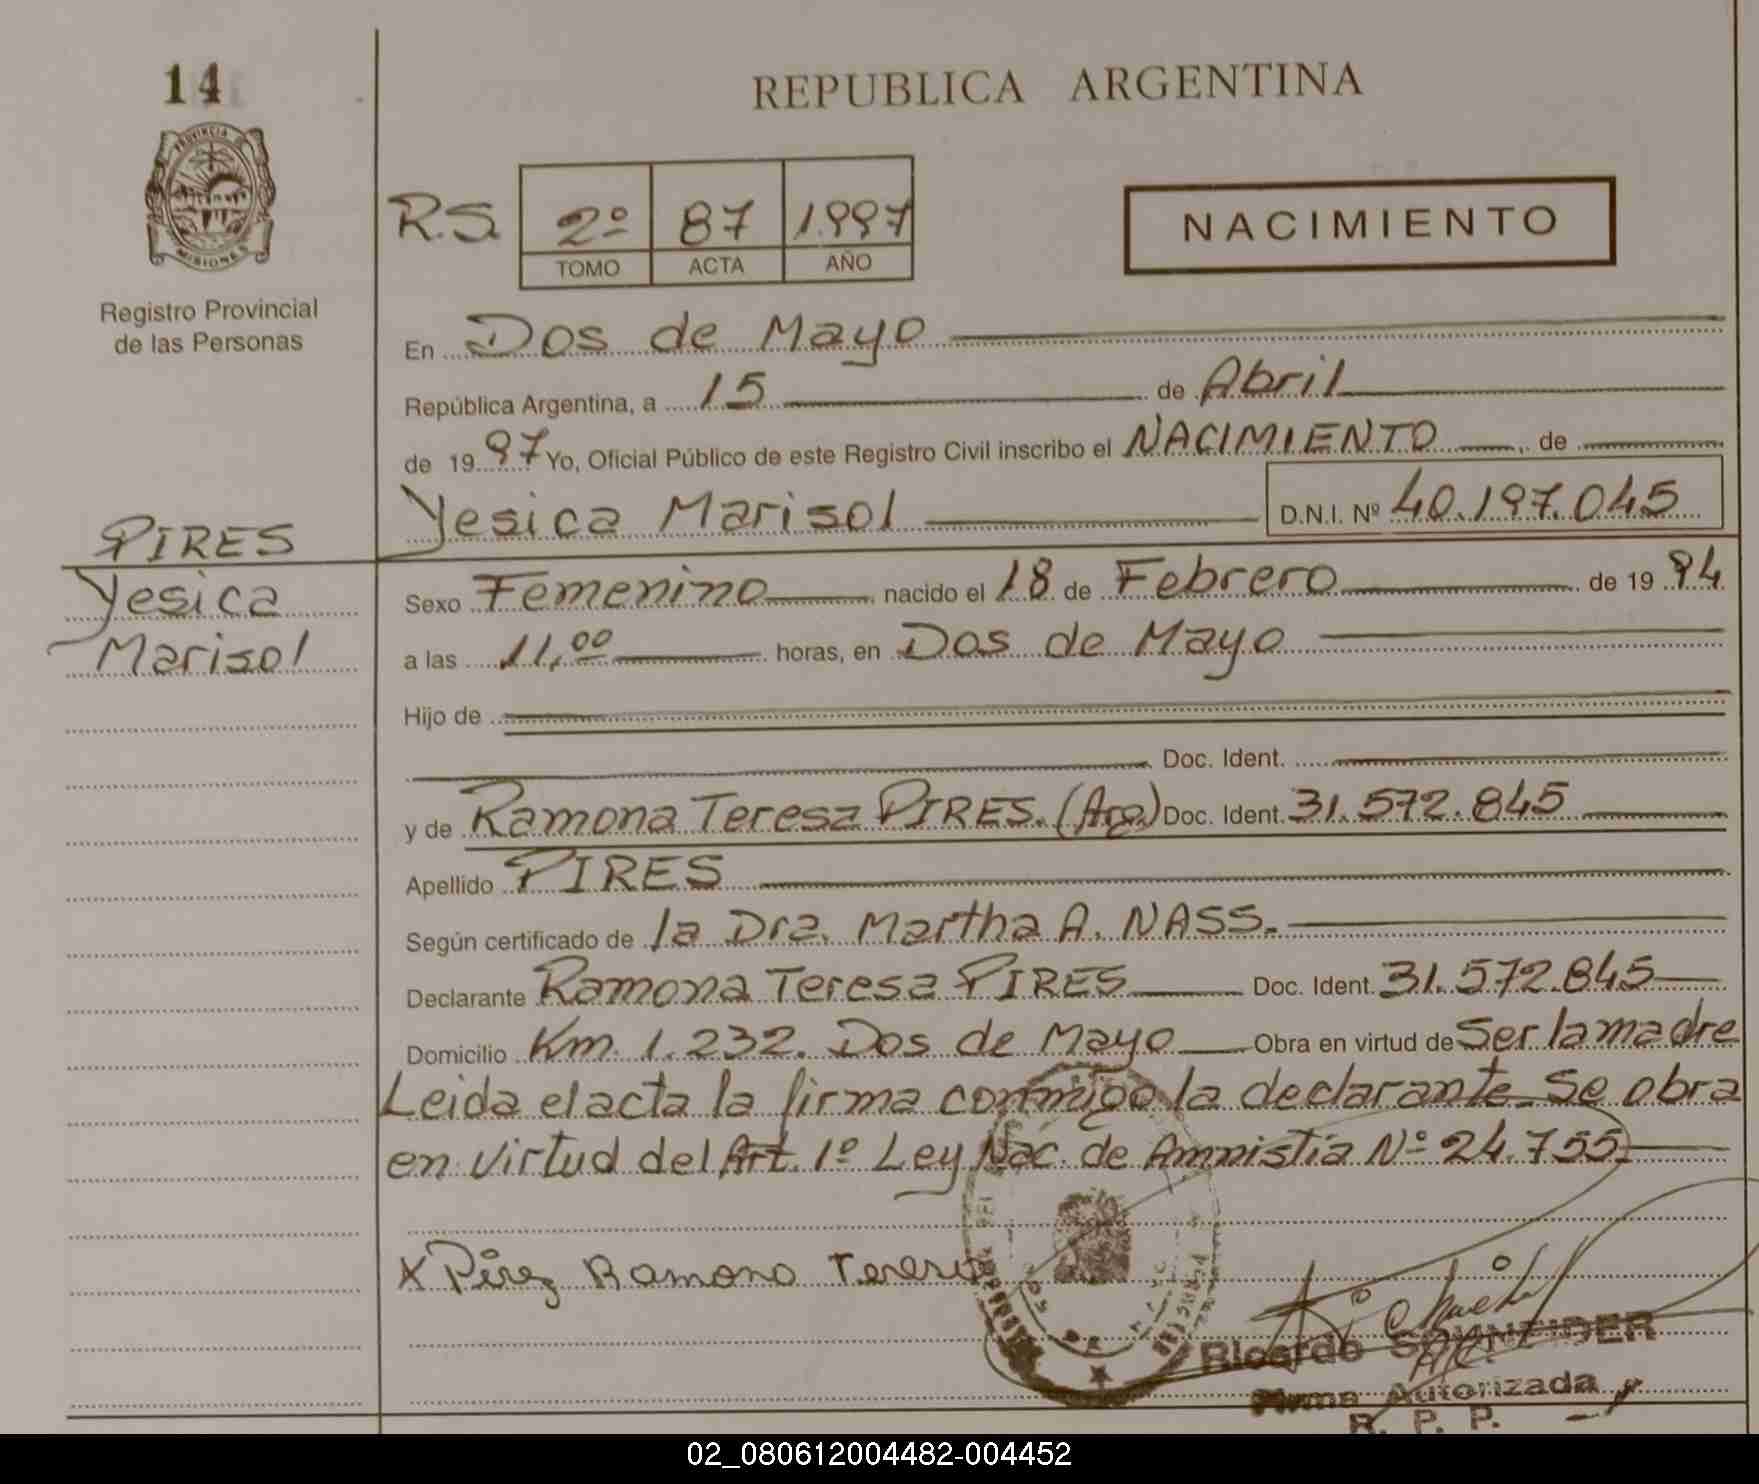 14
REPUBLICA ARGENTINA
PROVINCIA
MISIONES
Registro Provincial
de las Personas
R.S. 2º 87 1.997
TOMO ACTA AÑO
NACIMIENTO
En Dos de Mayo
República Argentina, a 15 de Abril
de 19 97 Yo, Oficial Público de este Registro Civil inscribo el NACIMIENTO, de
Yesica Marisol D.N.I. Nº 40.197.045
PIRES
Yesica
Marisol
Sexo Femenino nacido el 18 de Febrero de 19 94
a las 11,00 horas, en Dos de Mayo
Hijo de
Doc. Ident.
y de Ramona Teresa PIRES. (Arg.) Doc. Ident. 31.572.845
Apellido PIRES
Según certificado de la Dra. Martha A. NASS.
Declarante Ramona Teresa PIRES Doc. Ident. 31.572.845
Domicilio Km. 1.232. Dos de Mayo Obra en virtud de Ser la madre
Leida el acta la firma conmigo la declarante. Se obra
en virtud del Art. 1º Ley Nac. de Amnistia Nº 24.755.
X Pirez Ramona Teresa
Ricardo SCHNEIDER
Firma Autorizada
R. P. P.
02_080612004482-004452